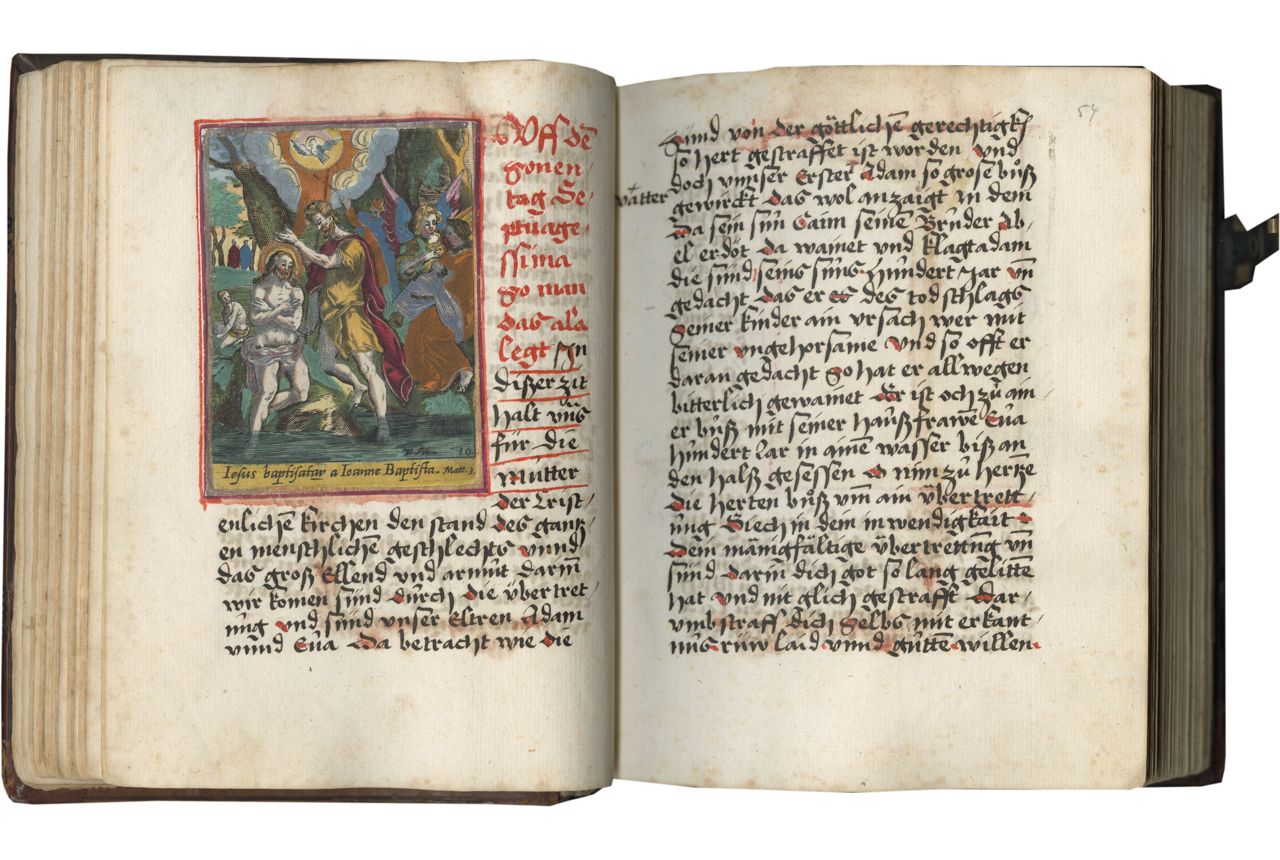 Uff dē
gonen
tag Se-
ptuage-
ssima
so man
das al'a
legt In
dißer zit
halt vnß
für die
Mütter
der Crist-
enlichē kirchen den stand des ganß-
en menschlichē geschlechts vnnd
das groß Ellend vnd armůt darin̄
wir komen sind důrch die übertret-
ůng vnd sünd vnser Eltren Adam
vnnd Eůa Da betracht wie die
Iesus baptisatar a Ioanne Baptista. Matt. 3.
10
54
sünd von der göttlichē gerechtigk
so hert gestraffet ist worden vnd
doch vnnser Erster Adam so grose bůß
vätter
gewirckt das wol anzaigt in dem
Da sein sůn Caim seinē Brůder Ab-
el erdöt Da wainet vnd klagt adam
die sünd seins sůns hůndert Jar vn̄
gedacht das er es des todschlags
Seiner kinder ain vrsach wer mit
seiner vngehorsame vnd so offt er
daran gedacht So hat er allwegen
bitterlich gewainet Er ist och zů ain
er bůß mit seiner haůßfrawe Eůa
hůndert Iar in ainē wasser biß an
den halß gesessen O nim zů hertze
die herten bůß vm̄ ain übertrett-
ůng Siech in dein inwendigkait
Dein mānigfältige übertrettůng vn̄
sünd darin̄ dich got so lang gelitte
hat vnd nit glich gestrafft Dar-
vmb straff dich Selbs mit erkant
nůs rüw laid vnnd gůttē willen.